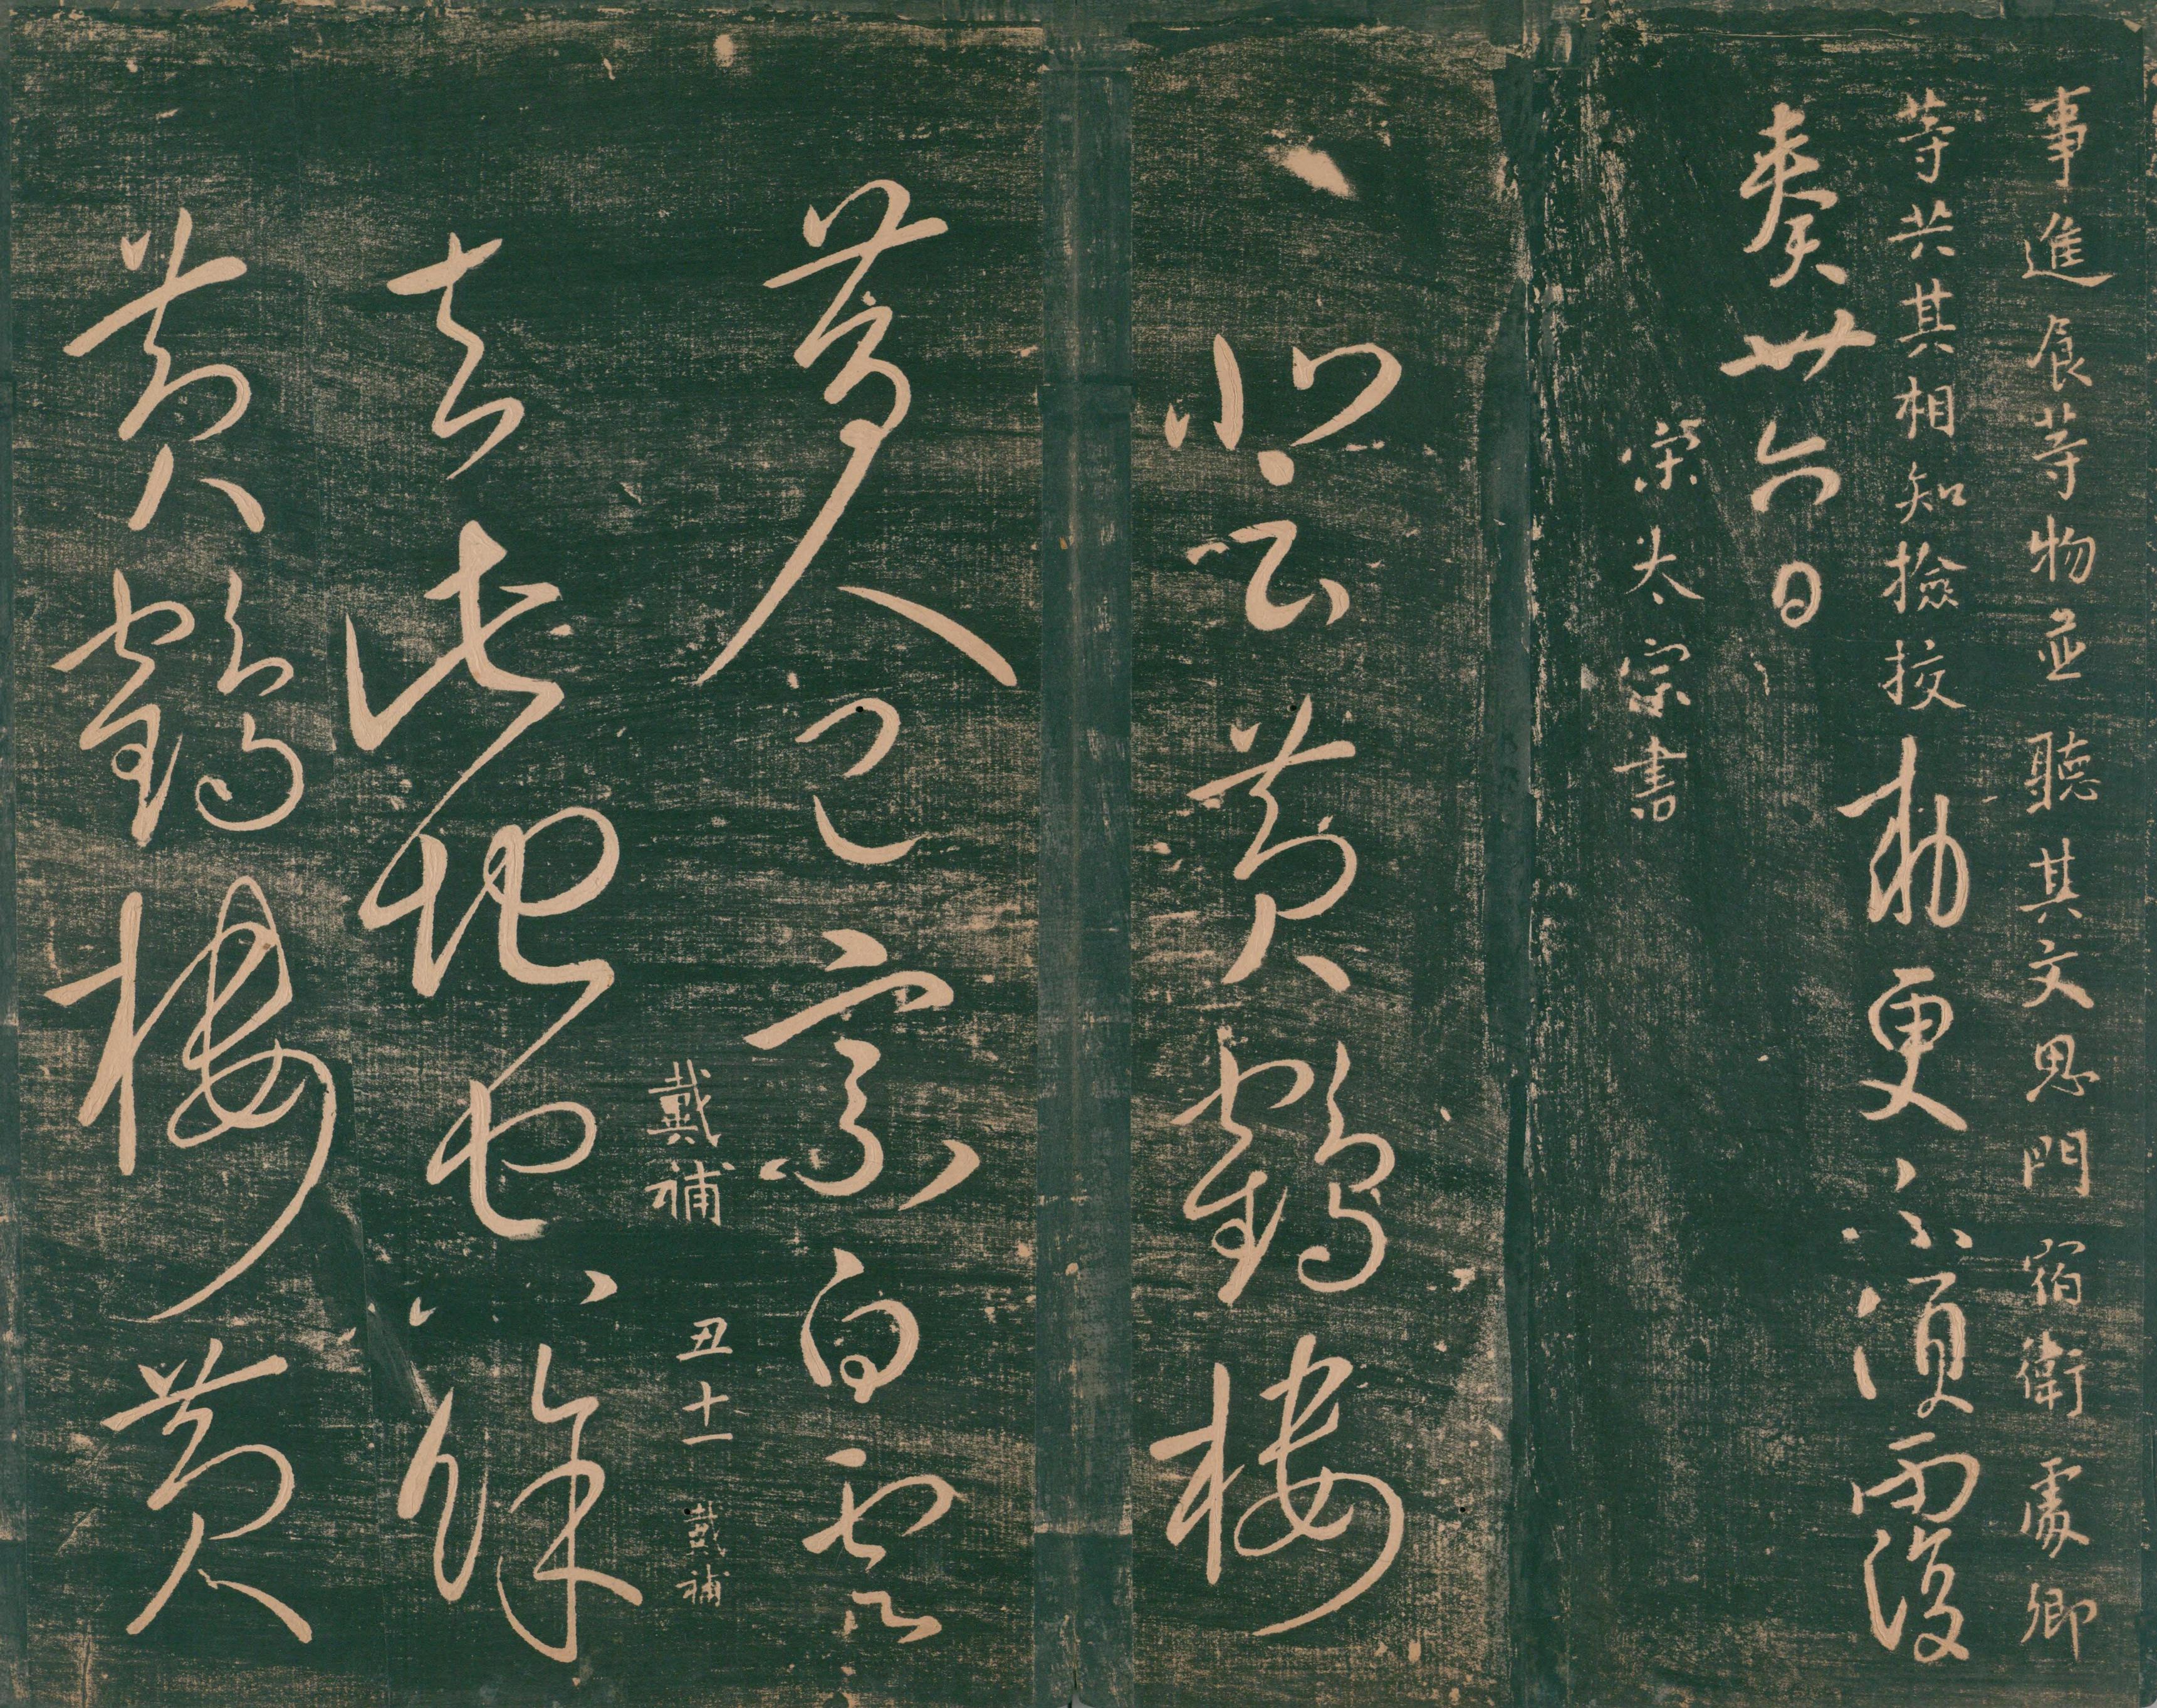 事進食等物並聽其文思門宿衛處卿
等共其相知撿挍勅更不須覆
奏廿六日
宋太宗書
登黃鶴樓
昔人已乘白雲
戴補 丑十一 戴補
去此地空餘
黃鶴樓黃